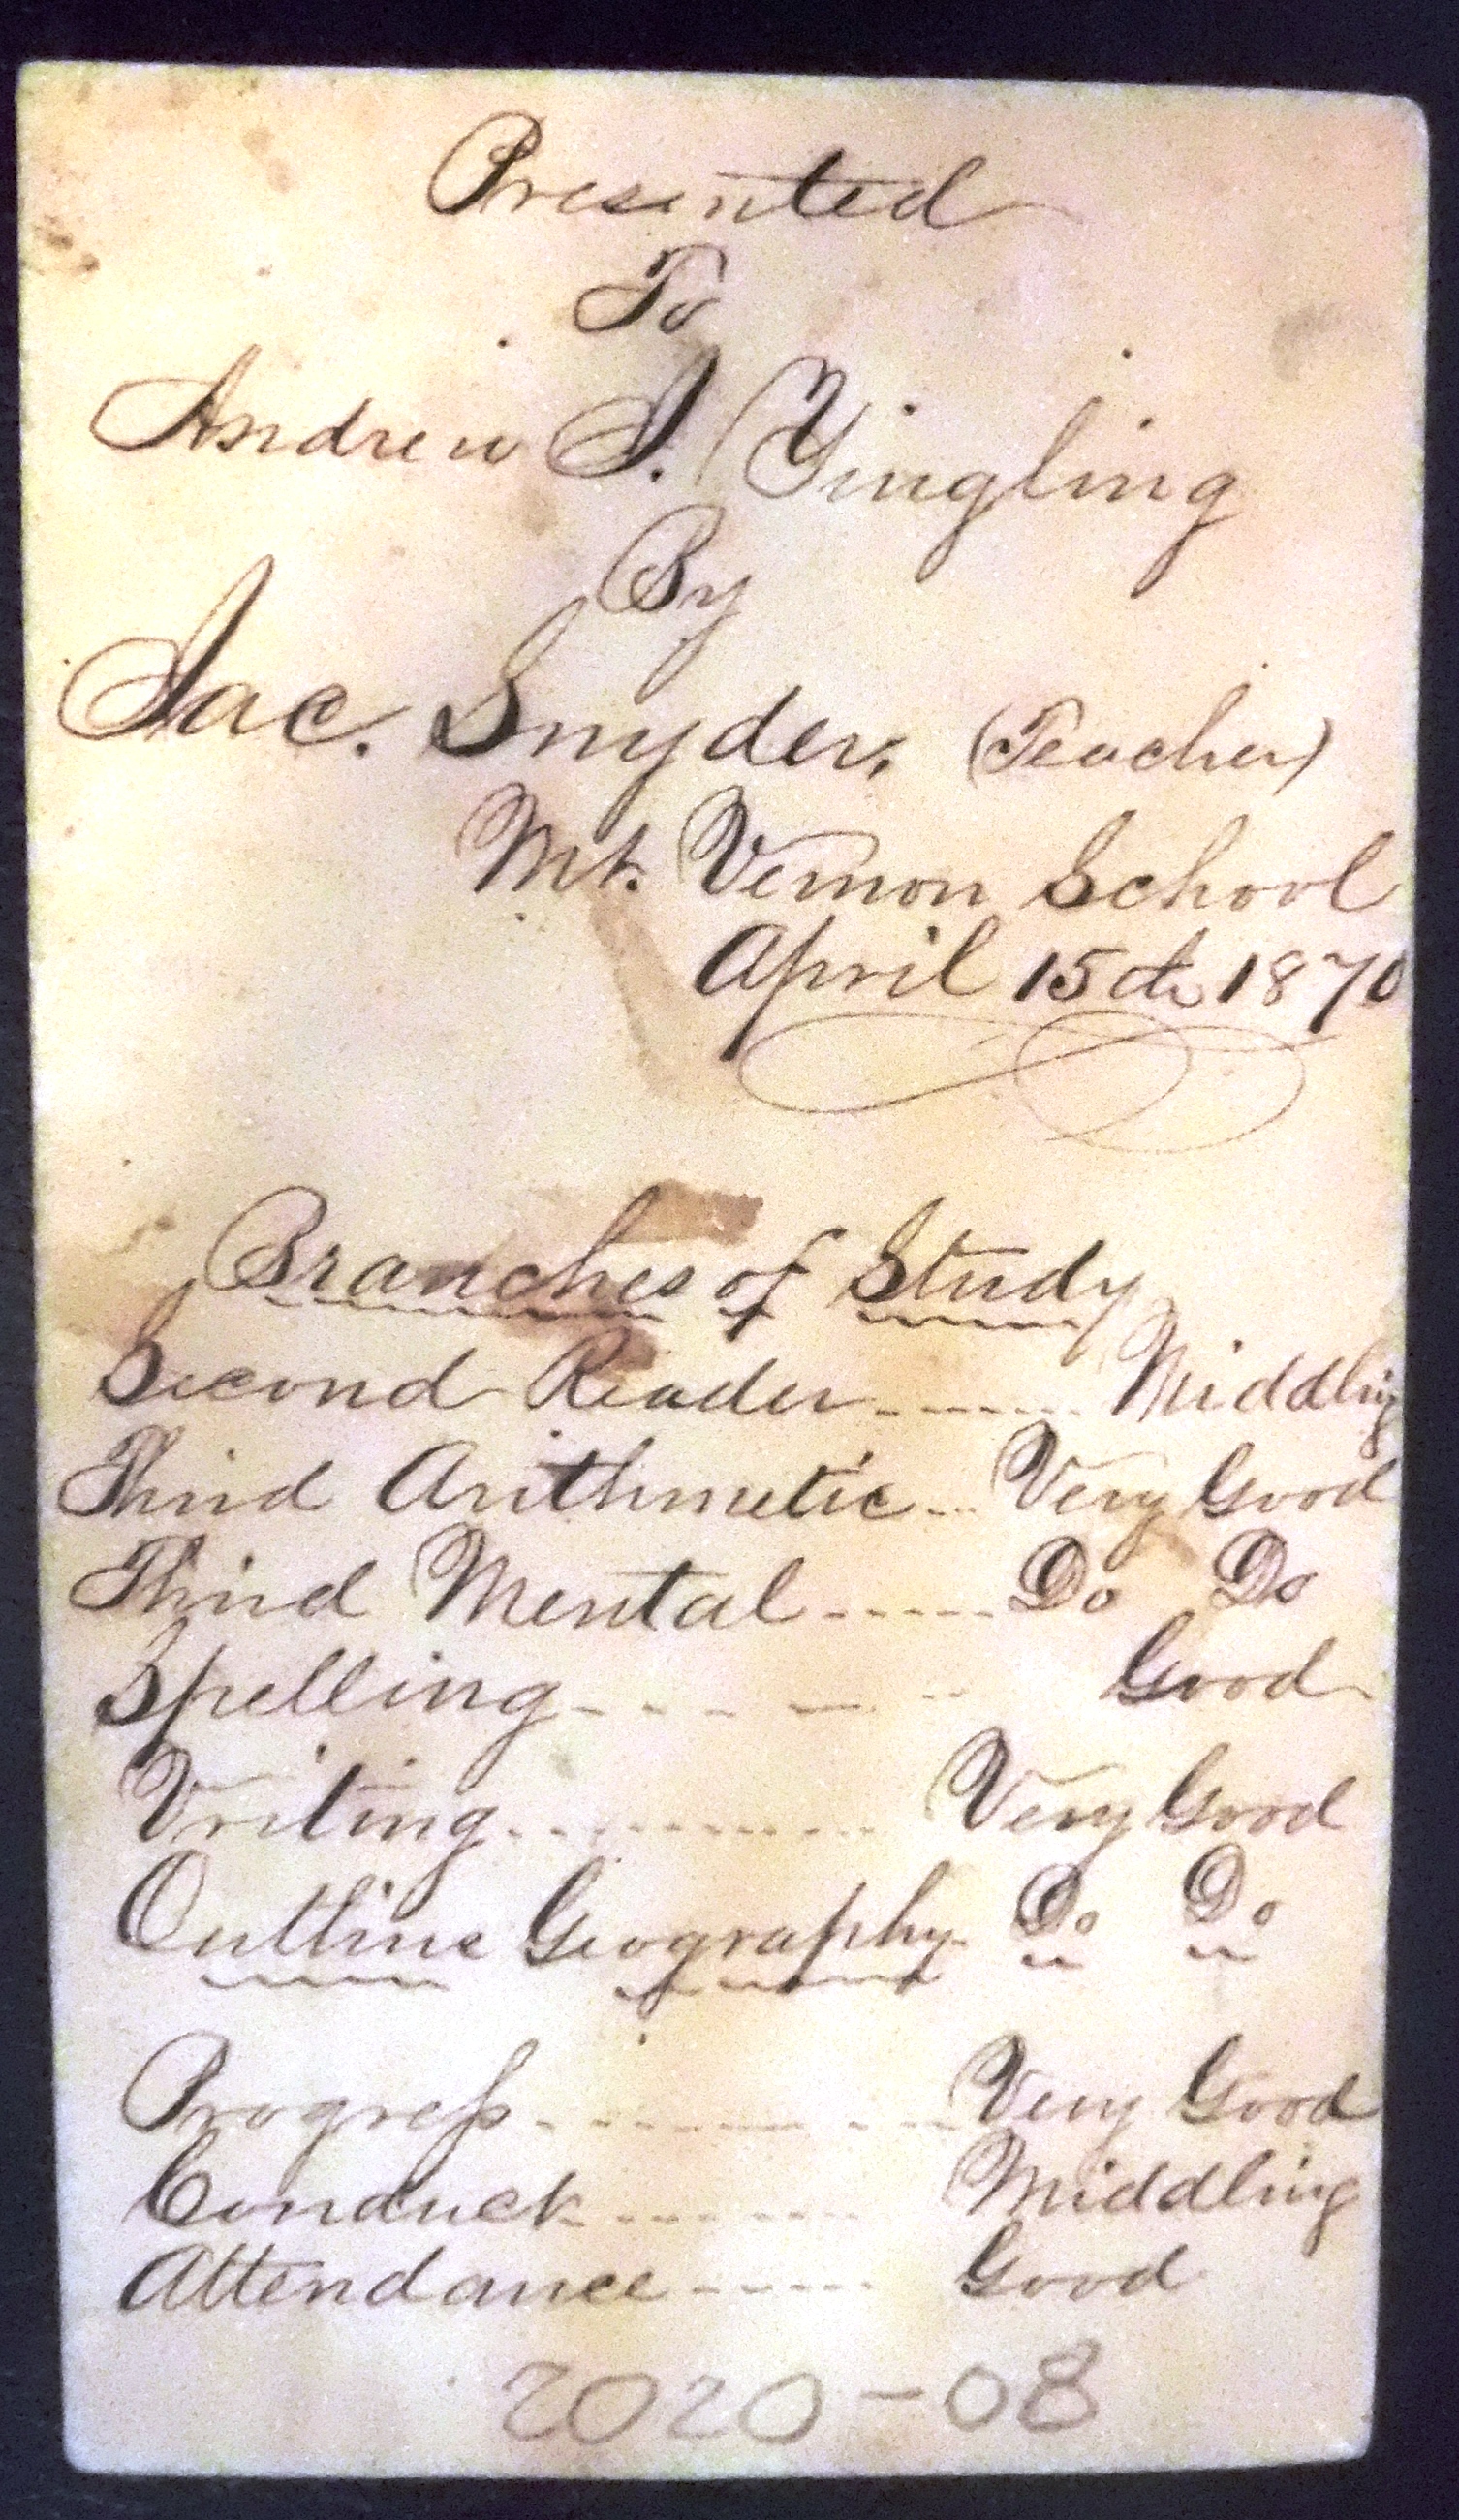 Presented
To
Andrew I. Yingling
By
Jac. Snyder, (Teacher)
Mt. Vernon School
April 15th 1870
Branches of Study
Second Reader ------ Middling
Third Arithmetic --- Very Good
Third Mental ------ Do Do
Spelling - - - - - Good
Vriting ---------- Very Good
Outline Geography - Do Do
Progress - - - - - - Very Good
Conduct ------- Middling
Attendance ----- Good
2020-08